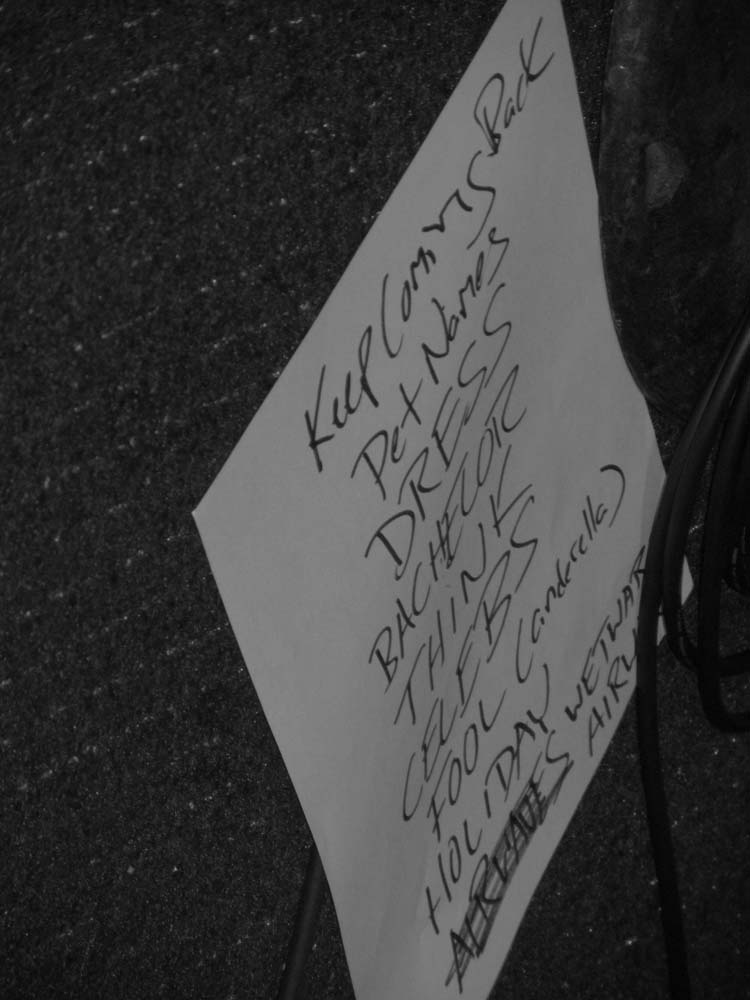 Keep Coming Back
Pet Names
DRESS
BACHELOR
THINK
CELEBS
FOOL (cinderella)
HOLIDAY WETWAR
AIRWAVES AIRW